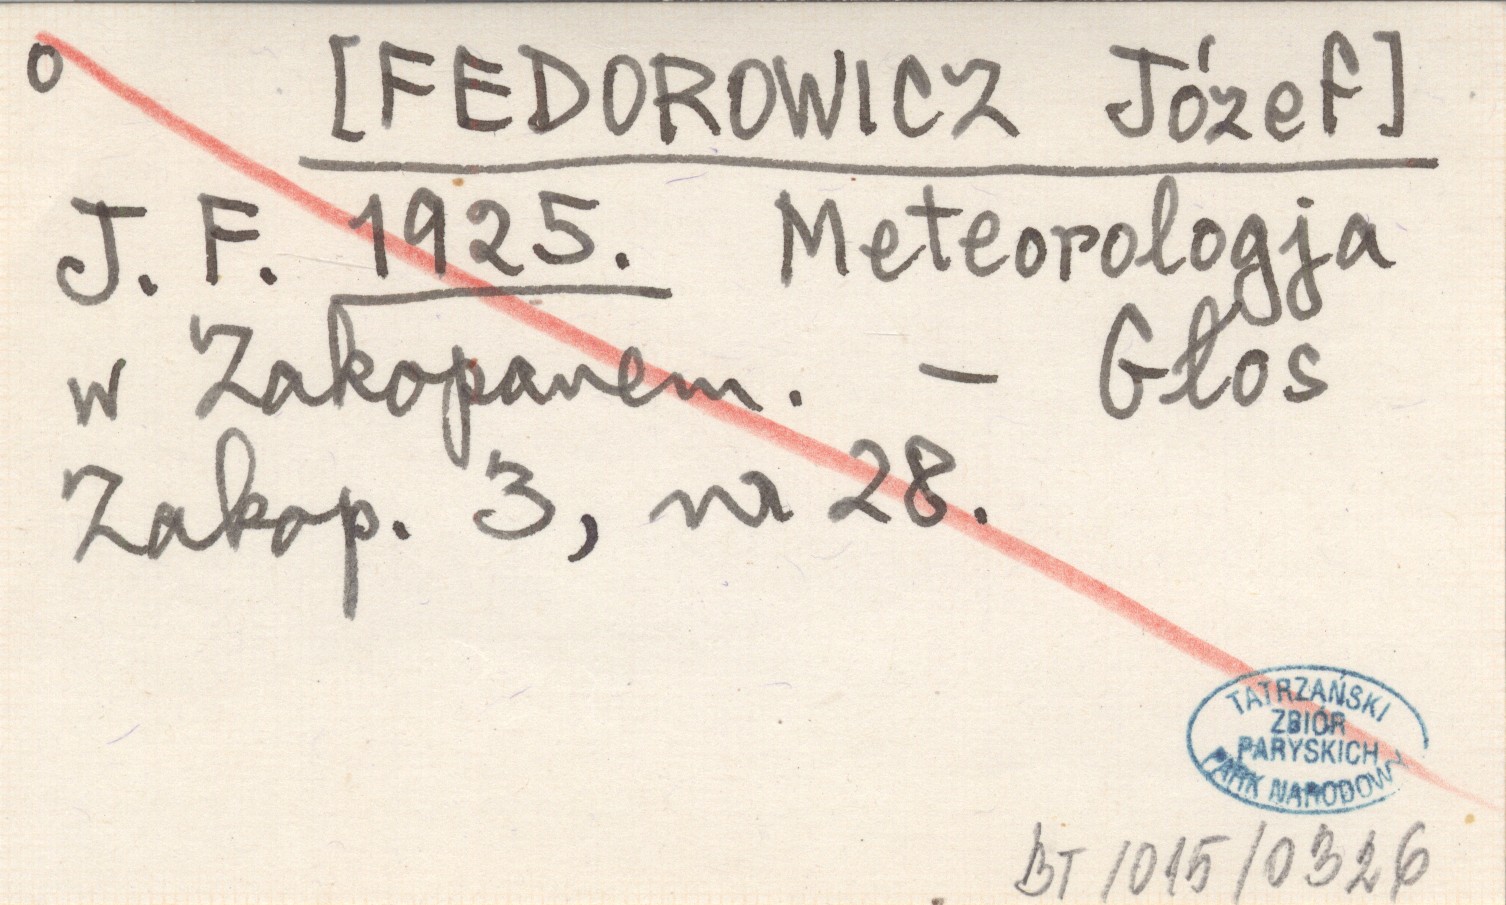 o [FEDOROWICZ Józef]
J. F. 1925. Meteorologja
w Zakopanem. – Głos
Zakop. 3, nr 28.
TATRZAŃSKI
ZBIÓR
PARYSKICH
PARK NARODOWY
BT/015/0326